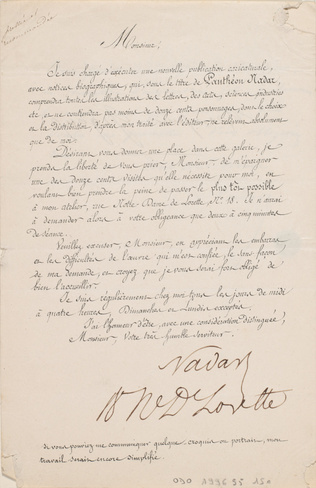 Monsieur,
Je suis chargé d'exécuter une nouvelle publication caricaturale,
avec notices biographiques, qui, sous le titre de Panthéon Nadar,
comprendra toutes les illustrations des lettres, des arts, sciences, industries
etc, et ne contiendra pas moins de douze cents personnages, dans le choix
et la distribution, d'après mon traité avec l'éditeur, ne relèvent absolument
que de moi.
Désirant vous donner une place dans cette galerie, je
prends la liberté de vous prier, Monsieur, de m'épargner
une des douze cents visites qu'elle nécessite pour moi, en
voulant bien prendre la peine de passer le plus tôt possible
à mon atelier, rue Notre Dame de Lorette, N° 18. Je n'aurai
à demander alors à votre obligeance que deux à cinq minutes
de séance.
Veuillez excuser, Monsieur, en appréciant les embarras
et les difficultés de l'œuvre qui m'est confiée, le sans façon
de ma demande, et croyez que je vous serai fort obligé de
bien l'accueillir.
Je suis régulièrement chez moi tous les jours de midi
à quatre heures, Dimanches et Lundis exceptés.
J'ai l'honneur d'être, avec une considération distinguée,
Monsieur, Votre très humble serviteur.
Nadar
18 N D Lorette
Si vous pouviez me communiquer quelque croquis ou portrait, mon
travail serait encore simplifié.